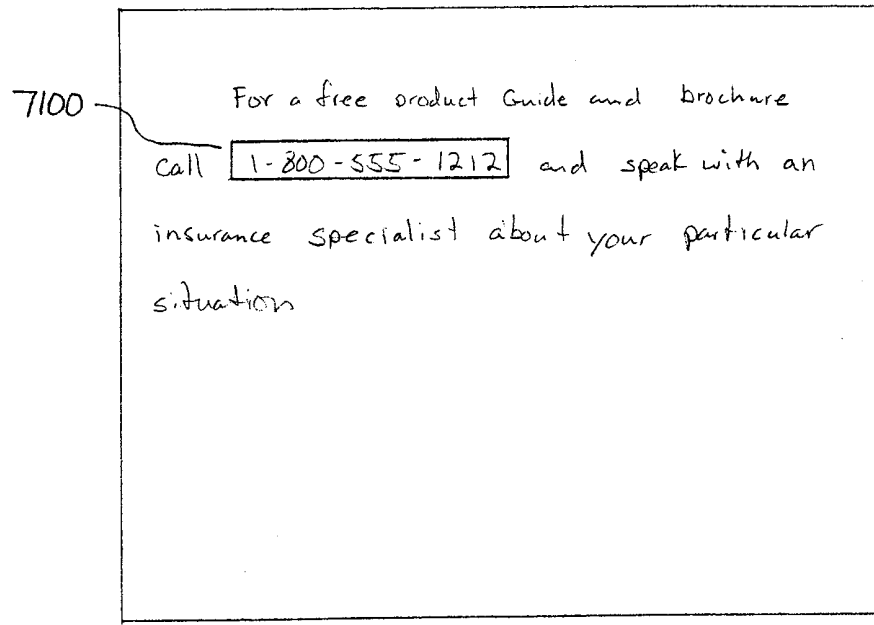 For a free product Guide and brochure
7100
Call 1-800-555-1212 and speak with an
insurance specialist about your particular
situation